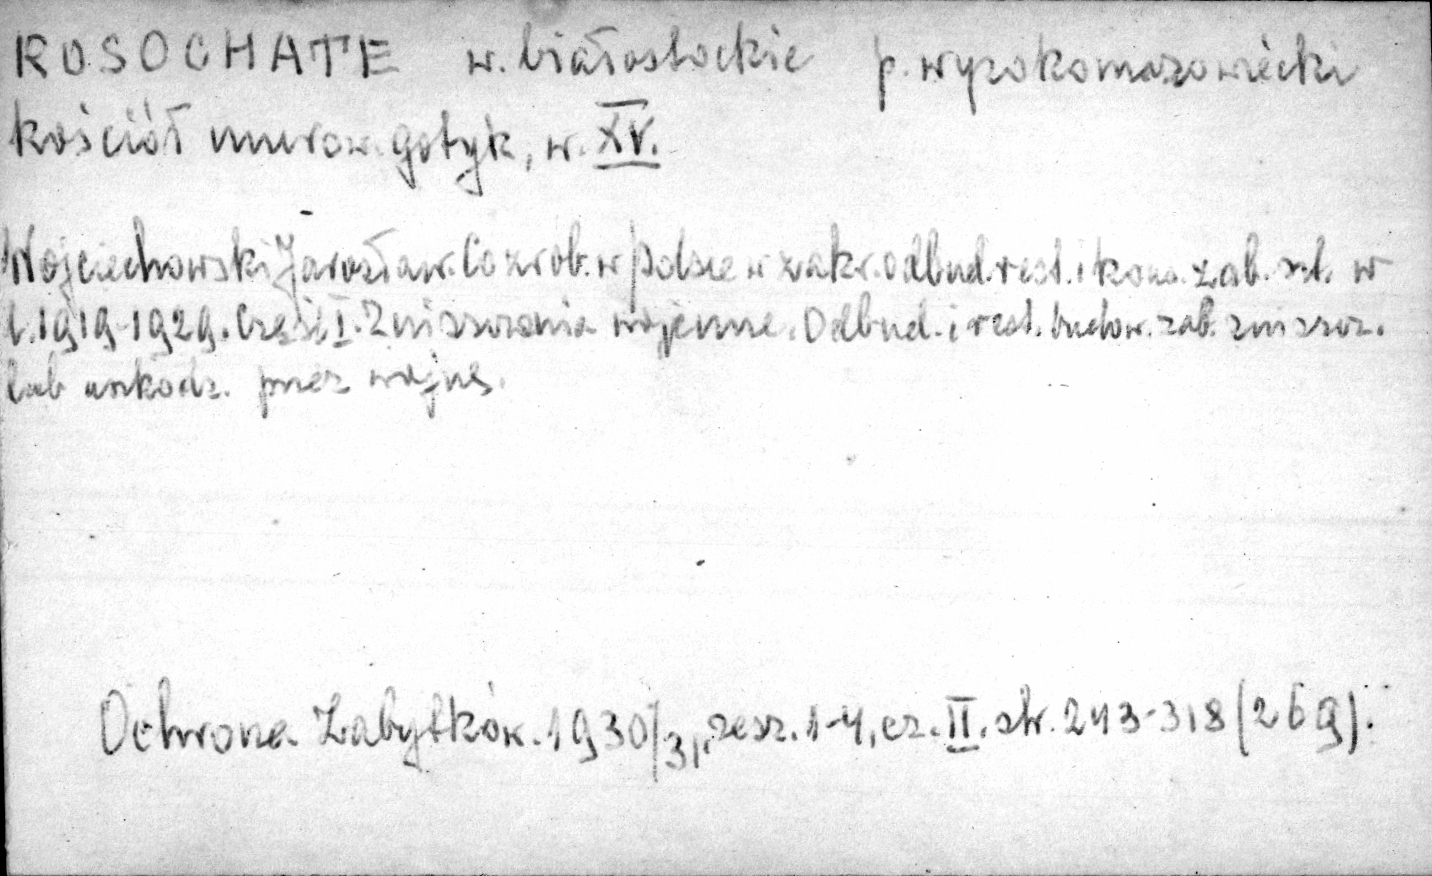 ROSOCHATE w. białostockie p. wysokomazowiecki
kościół murow. gotyk, w. XV.
Wojciechowski Jarosław. Co zrob. w Polsce w zakr. odbud. rest. i kons. zab. szt. w
l. 1919-1929. Część I. Zniszczenia wojenne. Odbud. i rest. budow. zab. zniszcz.
lub uszkodz. przez wojnę.
Ochrona Zabytków. 1930/31, zesz. 1-4, cz. II. str. 243-318 (269).